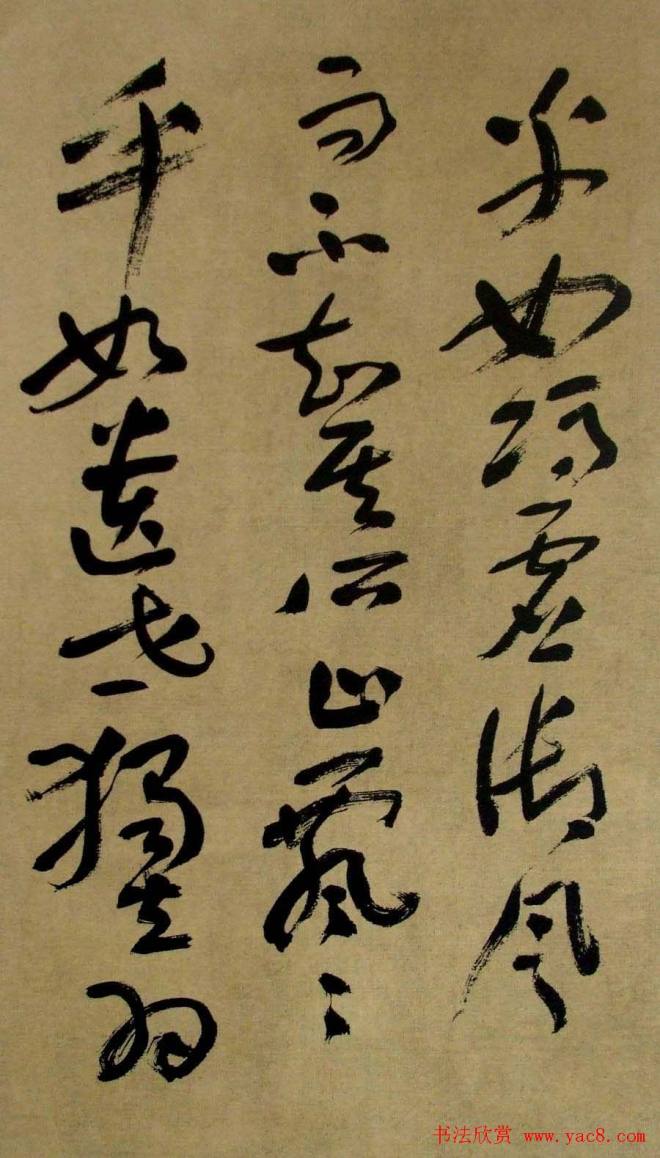 乎如馮虚御风
而不知其所止飘〻
乎如遗世独立羽
书法欣赏 www.yac8.com